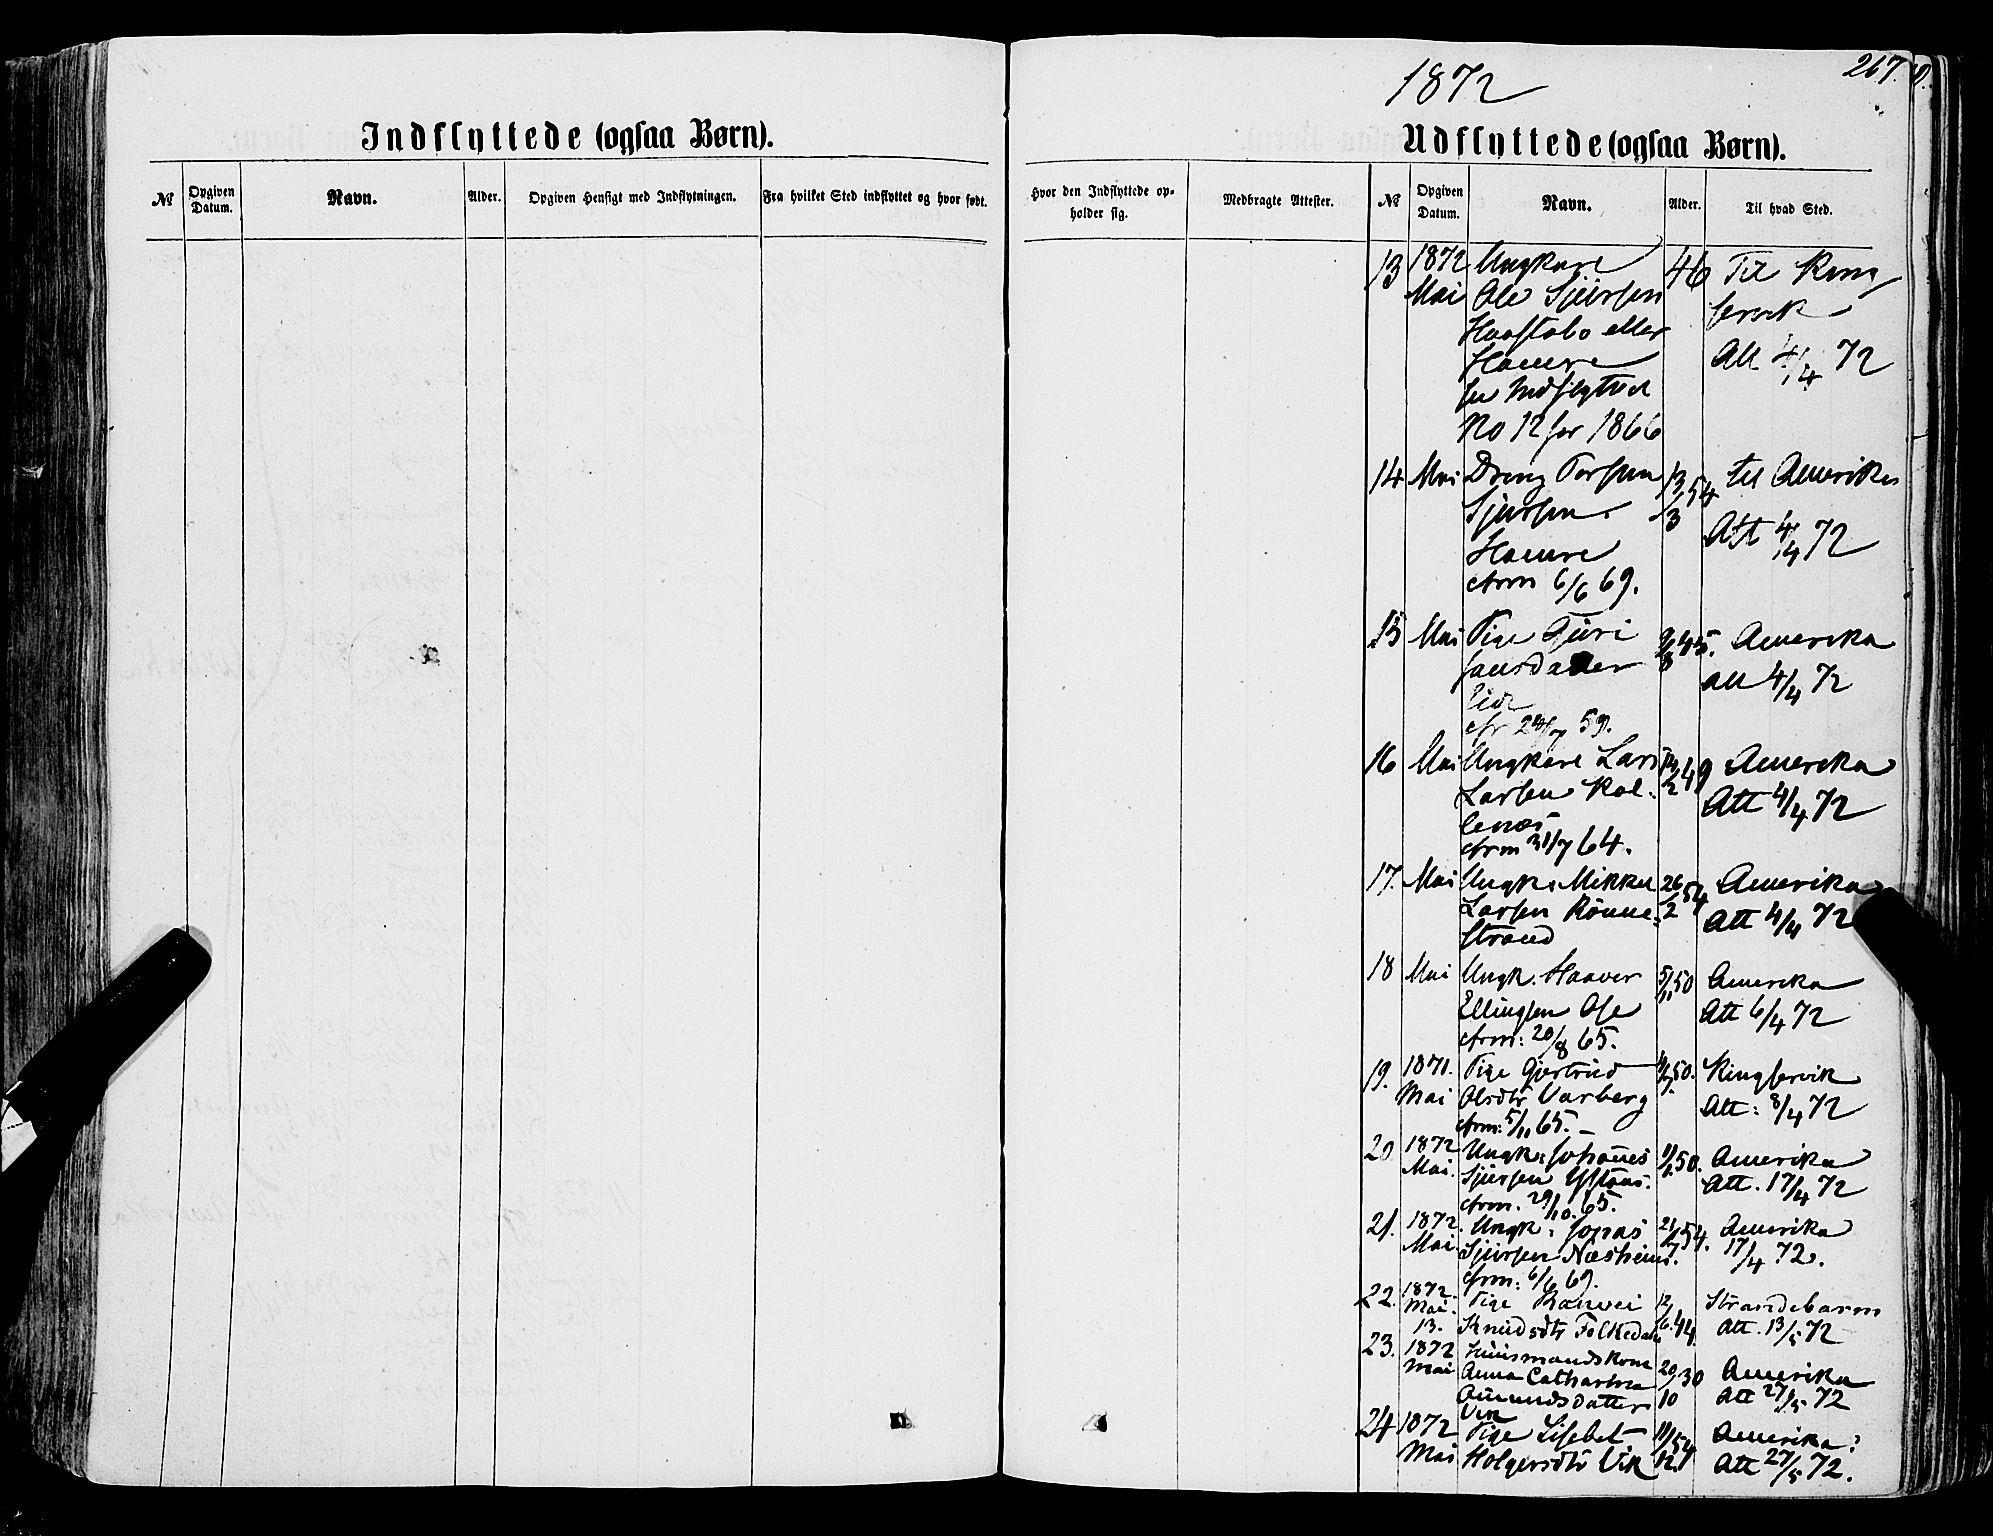 267.
1872
Indflyttede (ogsaa Børn).
Udflyttede (ogsaa Børn).
№ Opgiven Datum. Navn. Alder. Opgiven Hensigt med Indflytningen. Fra hvilket Sted indflyttet og hvor født. Hvor den Indflyttede opholder sig. Medbragte Attester. № Opgiven Datum. Navn. Alder. Til hvad Sted.
13 1872 Ungkare 46 Til King
Mai Ole Sjursen servik
Haastabo eller
Haeure Att 4/4 72
Indflyttet
No 12 for 1866
14 Mai Dreng Torsten 13/3 54 til Amerika
Sjursen Att 4/4 72
Haeure
cfrm 6/6 69.
15 Mai Pige Guri 45. Amerika
datter att 4/4 72
Eide
cfr 24/7 59.
16 Mai Ungkare Lars 49 Amerika
Larsen Kol= Att 4/4 72
lenæs
cfrm 31/7 64.
17. Mai Ungk: Mikkel 26/2 54 Amerika
Larsen Rønne= Att 4/4 72
strand
18 Mai Ungk. Haaver 5/11 50 Amerika
Ellingsen Ose Att 6/4 72
cfrm: 20/8 65.
19. 1871. Pige Gjertrud 50. Kingservik
Mai Olsdtr Varberg Att: 8/4 72
cfrm: 5/11 65.
20 1872 Ungk: Johanes 50. Amerika
Mai. Sjursen Ystaas. Att. 17/4 72
cfrm. 29/10. 65.
21. 1872. Ungk: Jonas 21/7 54. Amerika
Mai Sjursen Næsheim. 17/4 72.
cfrm: 6/6 69.
22. 1872. Pige Ranvei 12/6. 44 Strandebarm
Mai. 13. Knudsdtr Folkedal Att. 13/5 72
23. 1872 Huusmandskone 20/10 30 Amerika
Mai Anna Catharina Att 27/5 72
Aamundsdatter
Vik
24 1872 Pige Lisebet 11/12 54 Amerika:
Mai Holgersdtr Vik Att 27/5 72.